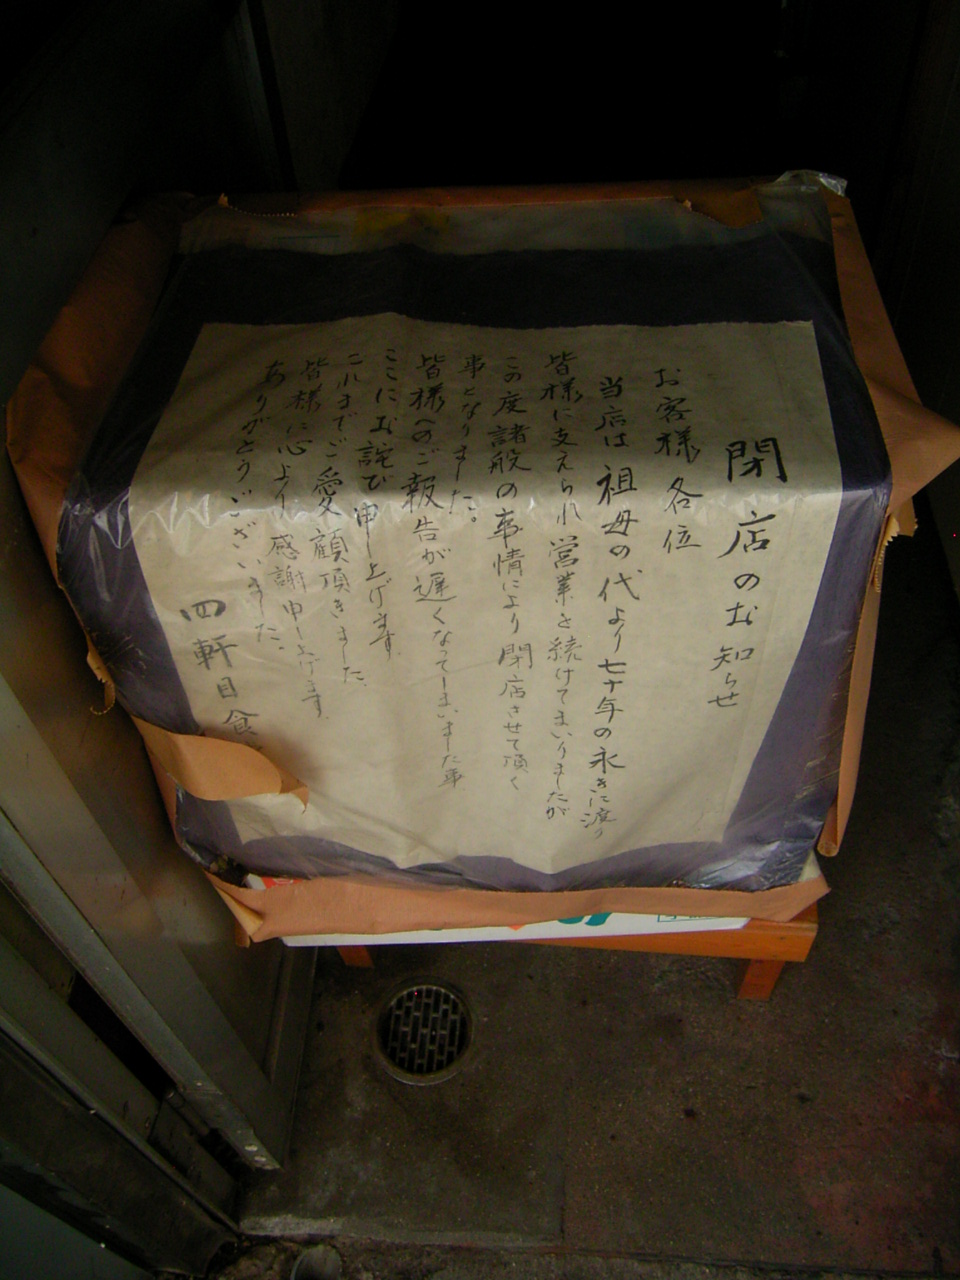 閉店のお知らせ
お客様各位
当店は祖母の代より七十年の永きに渡り
皆様に支えられ営業を続けてまいりましたが
この度諸般の事情により閉店させて頂く
事となりました。
皆様へのご報告が遅くなってしまいました事
ここにお詫び申し上げます
これまでご愛顧頂きました
皆様に心より感謝申し上げます
ありがとうございました。
四軒目食